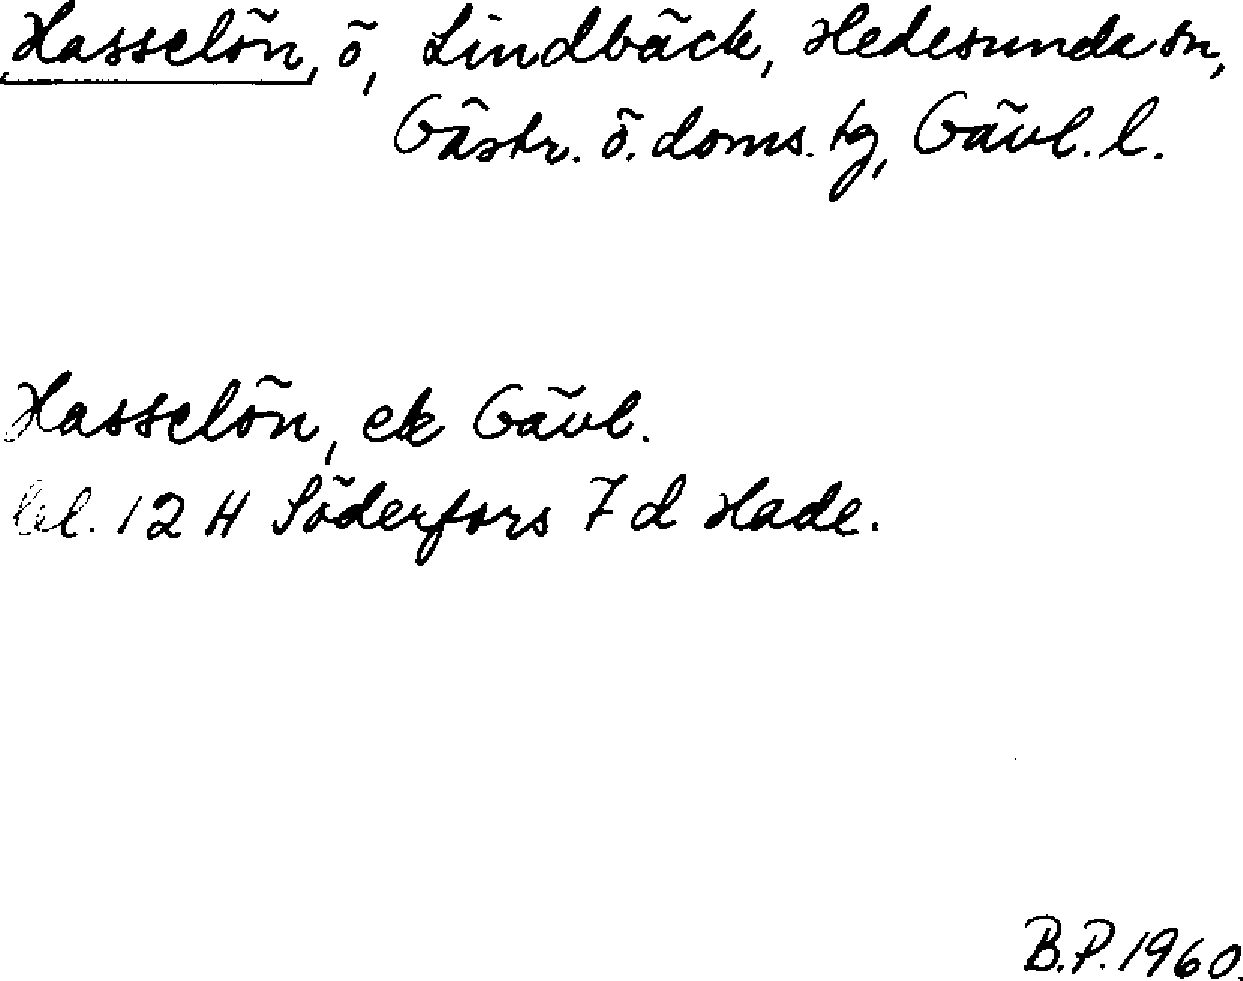 Hasselön, ö, Lindbäck, Hedesunda sn,
Gästr. ö. doms. tg, Gävl. l.
Hasselön, ek Gävl.
bl. 12 H Söderfors 7 d Hade.
B.P. 1960.